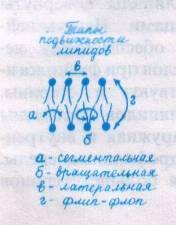 Типы
подвижности
липидов
в
а
г
б
а - сегментальная
б - вращательная
в - латеральная
г - флип-флоп